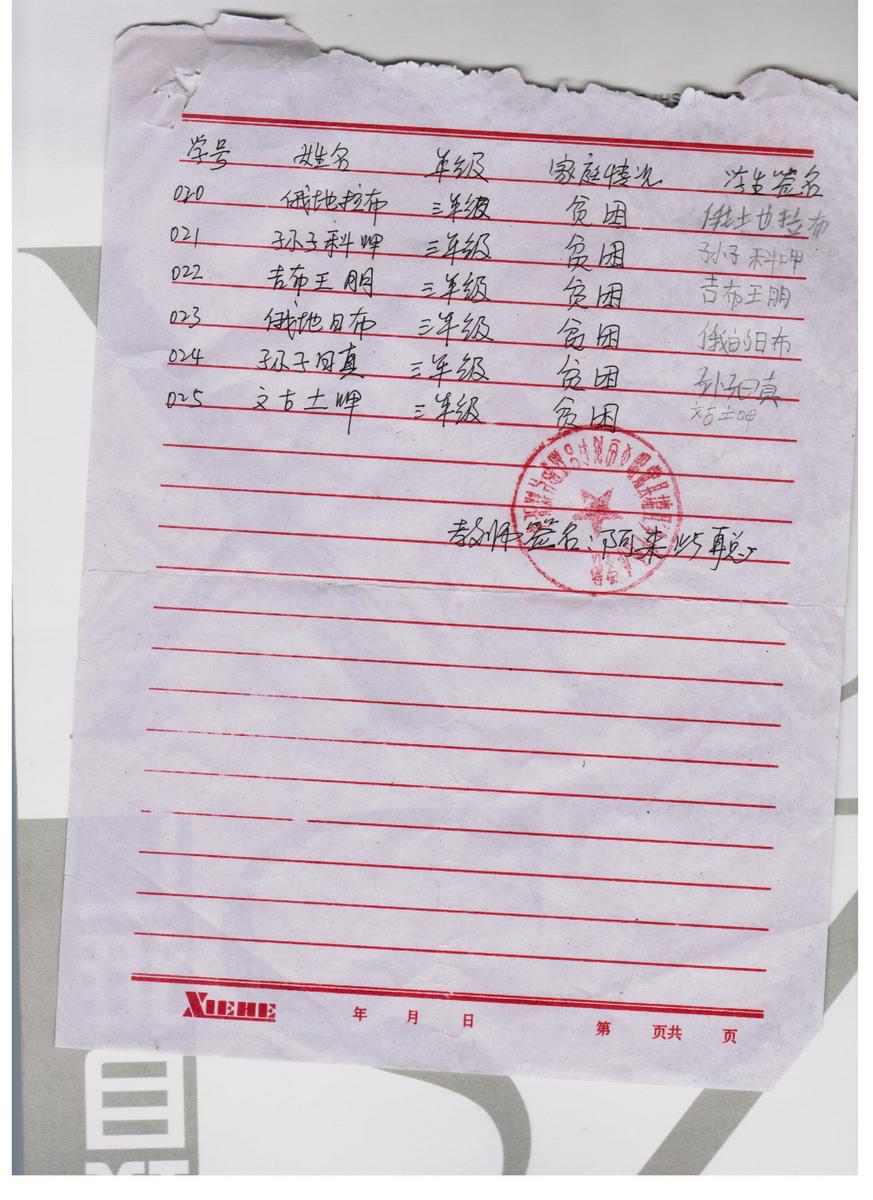 学号 姓名 年级 家庭情况 学生签名
020 俄地拉布 三年级 贫困 俄土也拉布
021 孙子科呷 三年级 贫困 孙子科呷
022 吉布王朋 三年级 贫困 吉布王朋
023 俄地日布 三年级 贫困 俄的日布
024 孙子日真 三年级 贫困 孙子日真
025 文古土呷 三年级 贫困 文古土呷
教师签名:阿来
XIEHE 年 月 日 第 页共 页